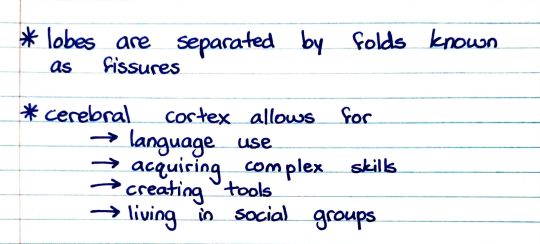 * lobes are separated by folds known
as fissures
* cerebral cortex allows for
→ language use
→ acquiring complex skills
→ creating tools
→ living in social groups